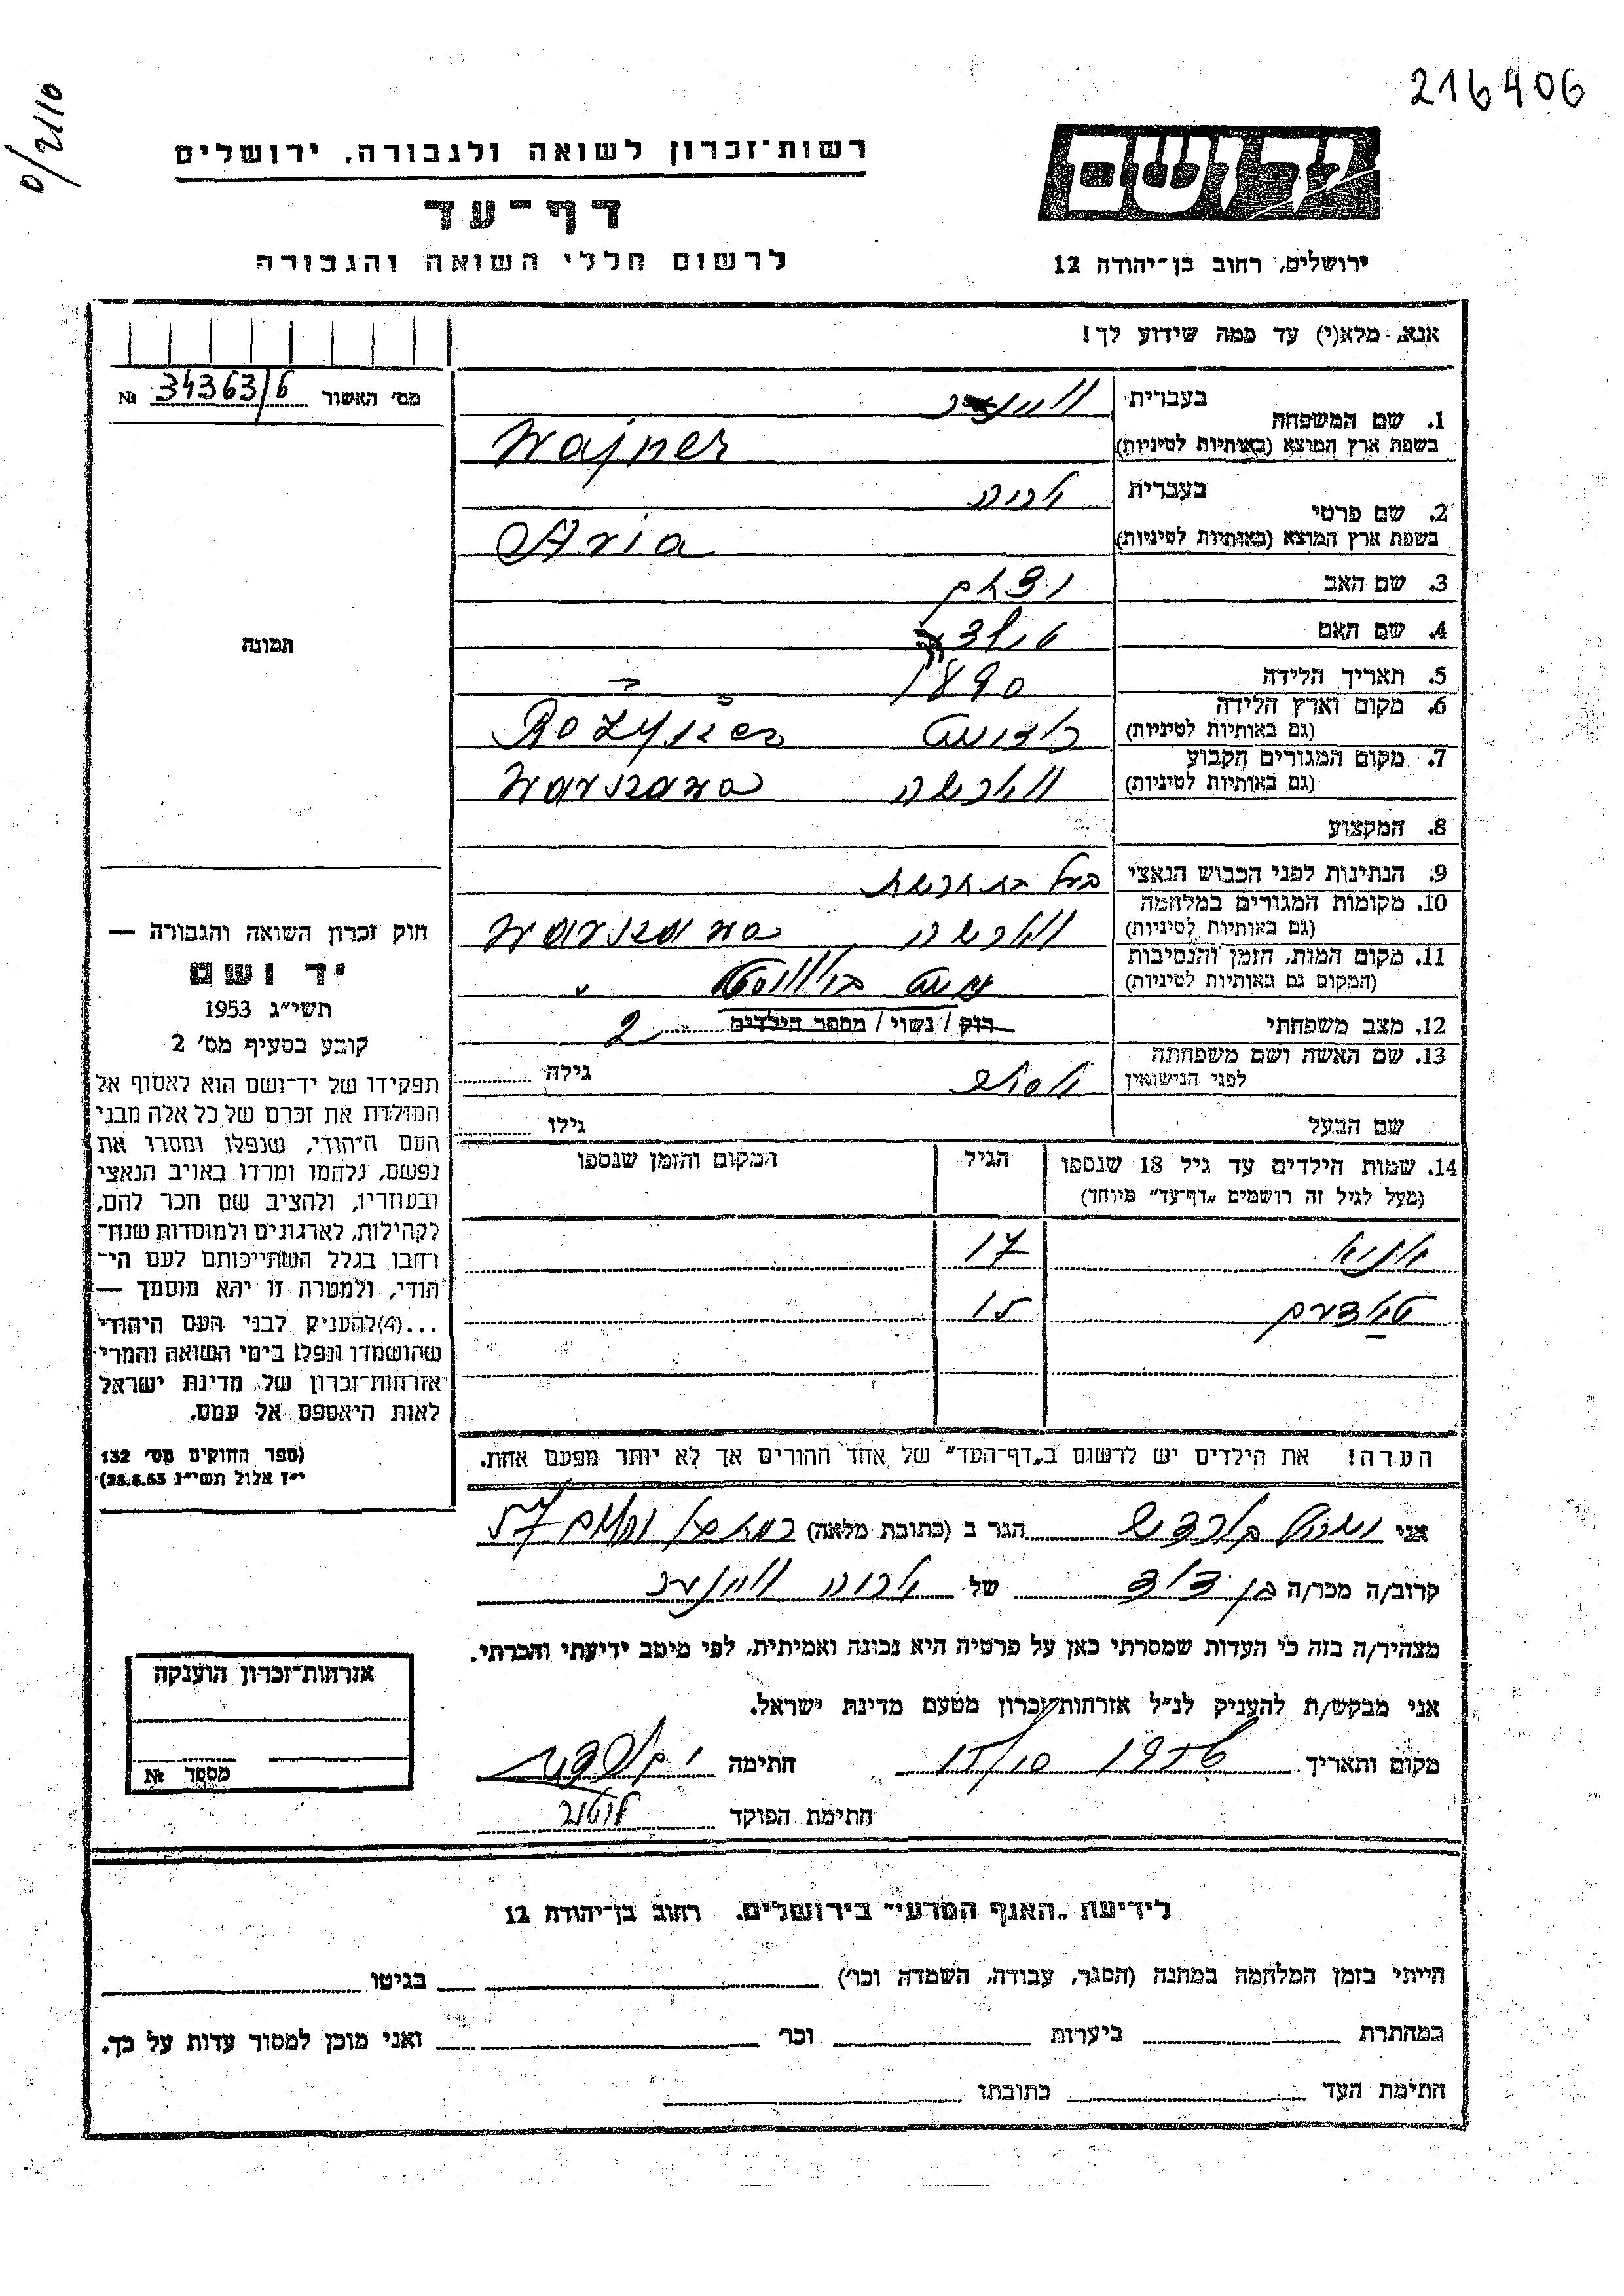 216406
0/2110
יד ושם
רשות־זכרון לשואה ולגבורה, ירושלים
דף־עד
לרשום חללי השואה והגבורה
ירושלים, רחוב בן־יהודה 12
אנא, מלא(י) עד כמה שידוע לך!
מס' האשור 34363/6 №
1. שם המשפחה בעברית ווינער
בשפת ארץ המוצא (באותיות לטיניות) Wajner
2. שם פרטי בעברית אריה
בשפת ארץ המוצא (באותיות לטיניות) Aria
3. שם האב
4. שם האם
5. תאריך הלידה 1890
6. מקום וארץ הלידה
(גם באותיות לטיניות)
7. מקום המגורים הקבוע ווארשה Warszawa
(גם באותיות לטיניות)
8. המקצוע
9. הנתינות לפני הכבוש הנאצי
10. מקומות המגורים במלחמה ווארשה Warszawa
(גם באותיות לטיניות)
11. מקום המות, הזמן והנסיבות
(המקום גם באותיות לטיניות)
12. מצב משפחתי רוק / נשוי / מספר הילדים 2
13. שם האשה ושם משפחתה
לפני הנישואין גילה
שם הבעל גילו
14. שמות הילדים עד גיל 18 שנספו הגיל המקום והזמן שנספו
(מעל לגיל זה רושמים „דף־עד" מיוחד)
17
15
הערה! את הילדים יש לרשום ב„דף־העד" של אחד ההורים אך לא יותר מפעם אחת.
תמונה
חוק זכרון השואה והגבורה —
יד ושם
תשי"ג 1953
קובע בסעיף מס' 2
תפקידו של יד־ושם הוא לאסוף אל
המולדת את זכרם של כל אלה מבני
העם היהודי, שנפלו ומסרו את
נפשם, נלחמו ומרדו באויב הנאצי
ובעוזריו, ולהציב שם וזכר להם,
לקהילות, לארגונים ולמוסדות שנח־
רבו בגלל השתייכותם לעם הי־
הודי, ולמטרה זו יהא מוסמך —
...(4)להעניק לבני העם היהודי
שהושמדו ונפלו בימי השואה והמרי
אזרחות־זכרון של מדינת ישראל
לאות היאספם אל עמם.
(ספר החוקים מס' 132
י"ז אלול תשי"ג 28.8.53)
אני הגר ב (כתובת מלאה)
קרוב/ה מכר/ה בן דוד של אריה ווינער
מצהיר/ה בזה כי העדות שמסרתי כאן על פרטיה היא נכונה ואמיתית, לפי מיטב ידיעתי והכרתי.
אני מבקש/ת להעניק לנ"ל אזרחות־זכרון מטעם מדינת ישראל.
מקום ותאריך 15/10 1956 חתימה
חתימת הפוקד
אזרחות־זכרון הוענקה
מספר №
לידיעת „האגף המדעי" בירושלים, רחוב בן־יהודה 12
הייתי בזמן המלחמה במחנה (הסגר, עבודה, השמדה וכו') בגיטו
במחתרת ביערות וכו' ואני מוכן למסור עדות על כך.
חתימת העד כתובתו